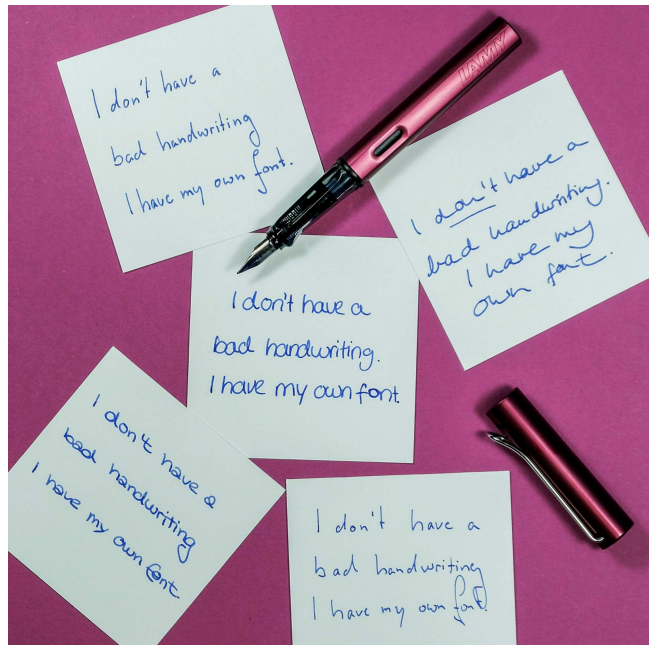 I don't have a
bad handwriting
I have my own font.
LAMY
I don't have a
bad handwriting.
I have my
own font.
I don't have a
bad handwriting.
I have my own font.
I don't have a
bad handwriting
I have my own font.
I don't have a
bad handwriting
I have my own font.